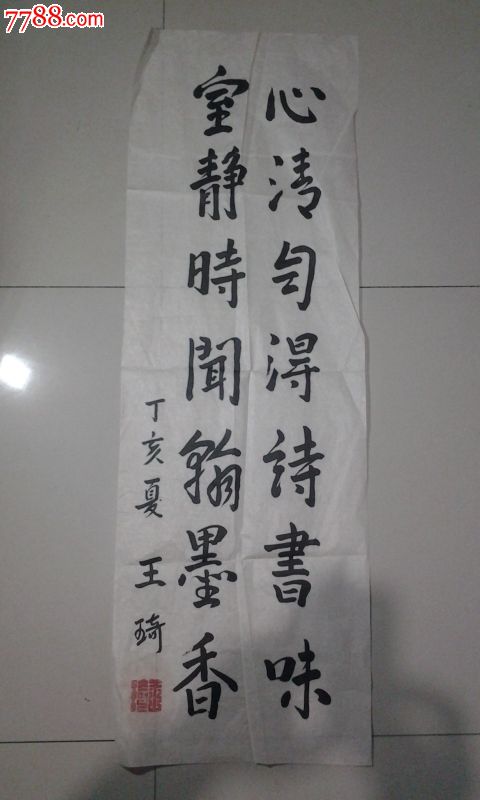 7788.com
心清匀得詩書味
室静時聞翰墨香
丁亥夏 王琦